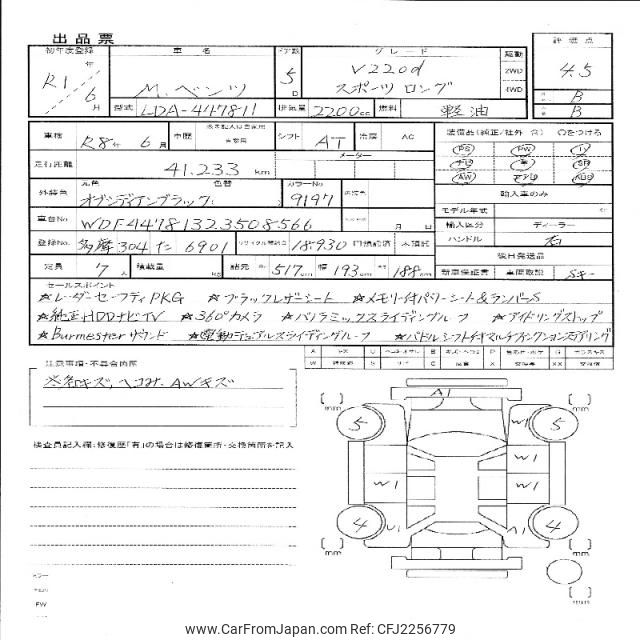 出品票
初年度登録 車名 ドア数 グレード 駆動 評価点
R1年 6月 M.ベンツ 5D V220d スポーツ ロング 2WD 4WD 4.5
B
B
型式 LDA-447811 排気量 2200cc 燃料 軽油
車検 R8年 6月 車歴 シフト AT 冷房 AC 装備品(純正/社外 含) ○をつける
走行距離 41,233 km メーター
PS PW
AW
外装色 元色 オブシディアンブラック 色替 カラーNo 9197 内装色
輸入車のみ
モデル年式
車台No WDF44781323508566 月 日 輸入区分 ディーラー
登録No 多摩304 た 6901 リサイクル預託金 18930 円 ハンドル 右
後日発送品
定員 7人 積載量 kg 諸元 長 517cm 幅 193cm 高 188cm 新車保証書 車両取説 Sキー
セールスポイント
☆レーダーセーフティPKG ☆ブラックレザーシート ☆メモリー付パワーシート&ランバーS
☆純正HDDナビTV ☆360°カメラ ☆パノラミックスライディングルーフ ☆アイドリングストップ
☆Burmesterサウンド ☆電動デュアルスライディングルーフ ☆パドルシフト付マルチファンクションステアリング
注意事項・不具合箇所
各部キズ、ヘコみ、AWキズ
A U B P G
W S C X XX
検査員記入欄:修復歴「有」の場合は修復箇所・交換箇所を記入
A1
mm mm
5 W1 5
W1
W1 W1
4 U1 A1 4
mm mm
FW
www.CarFromJapan.com Ref: CFJ2256779